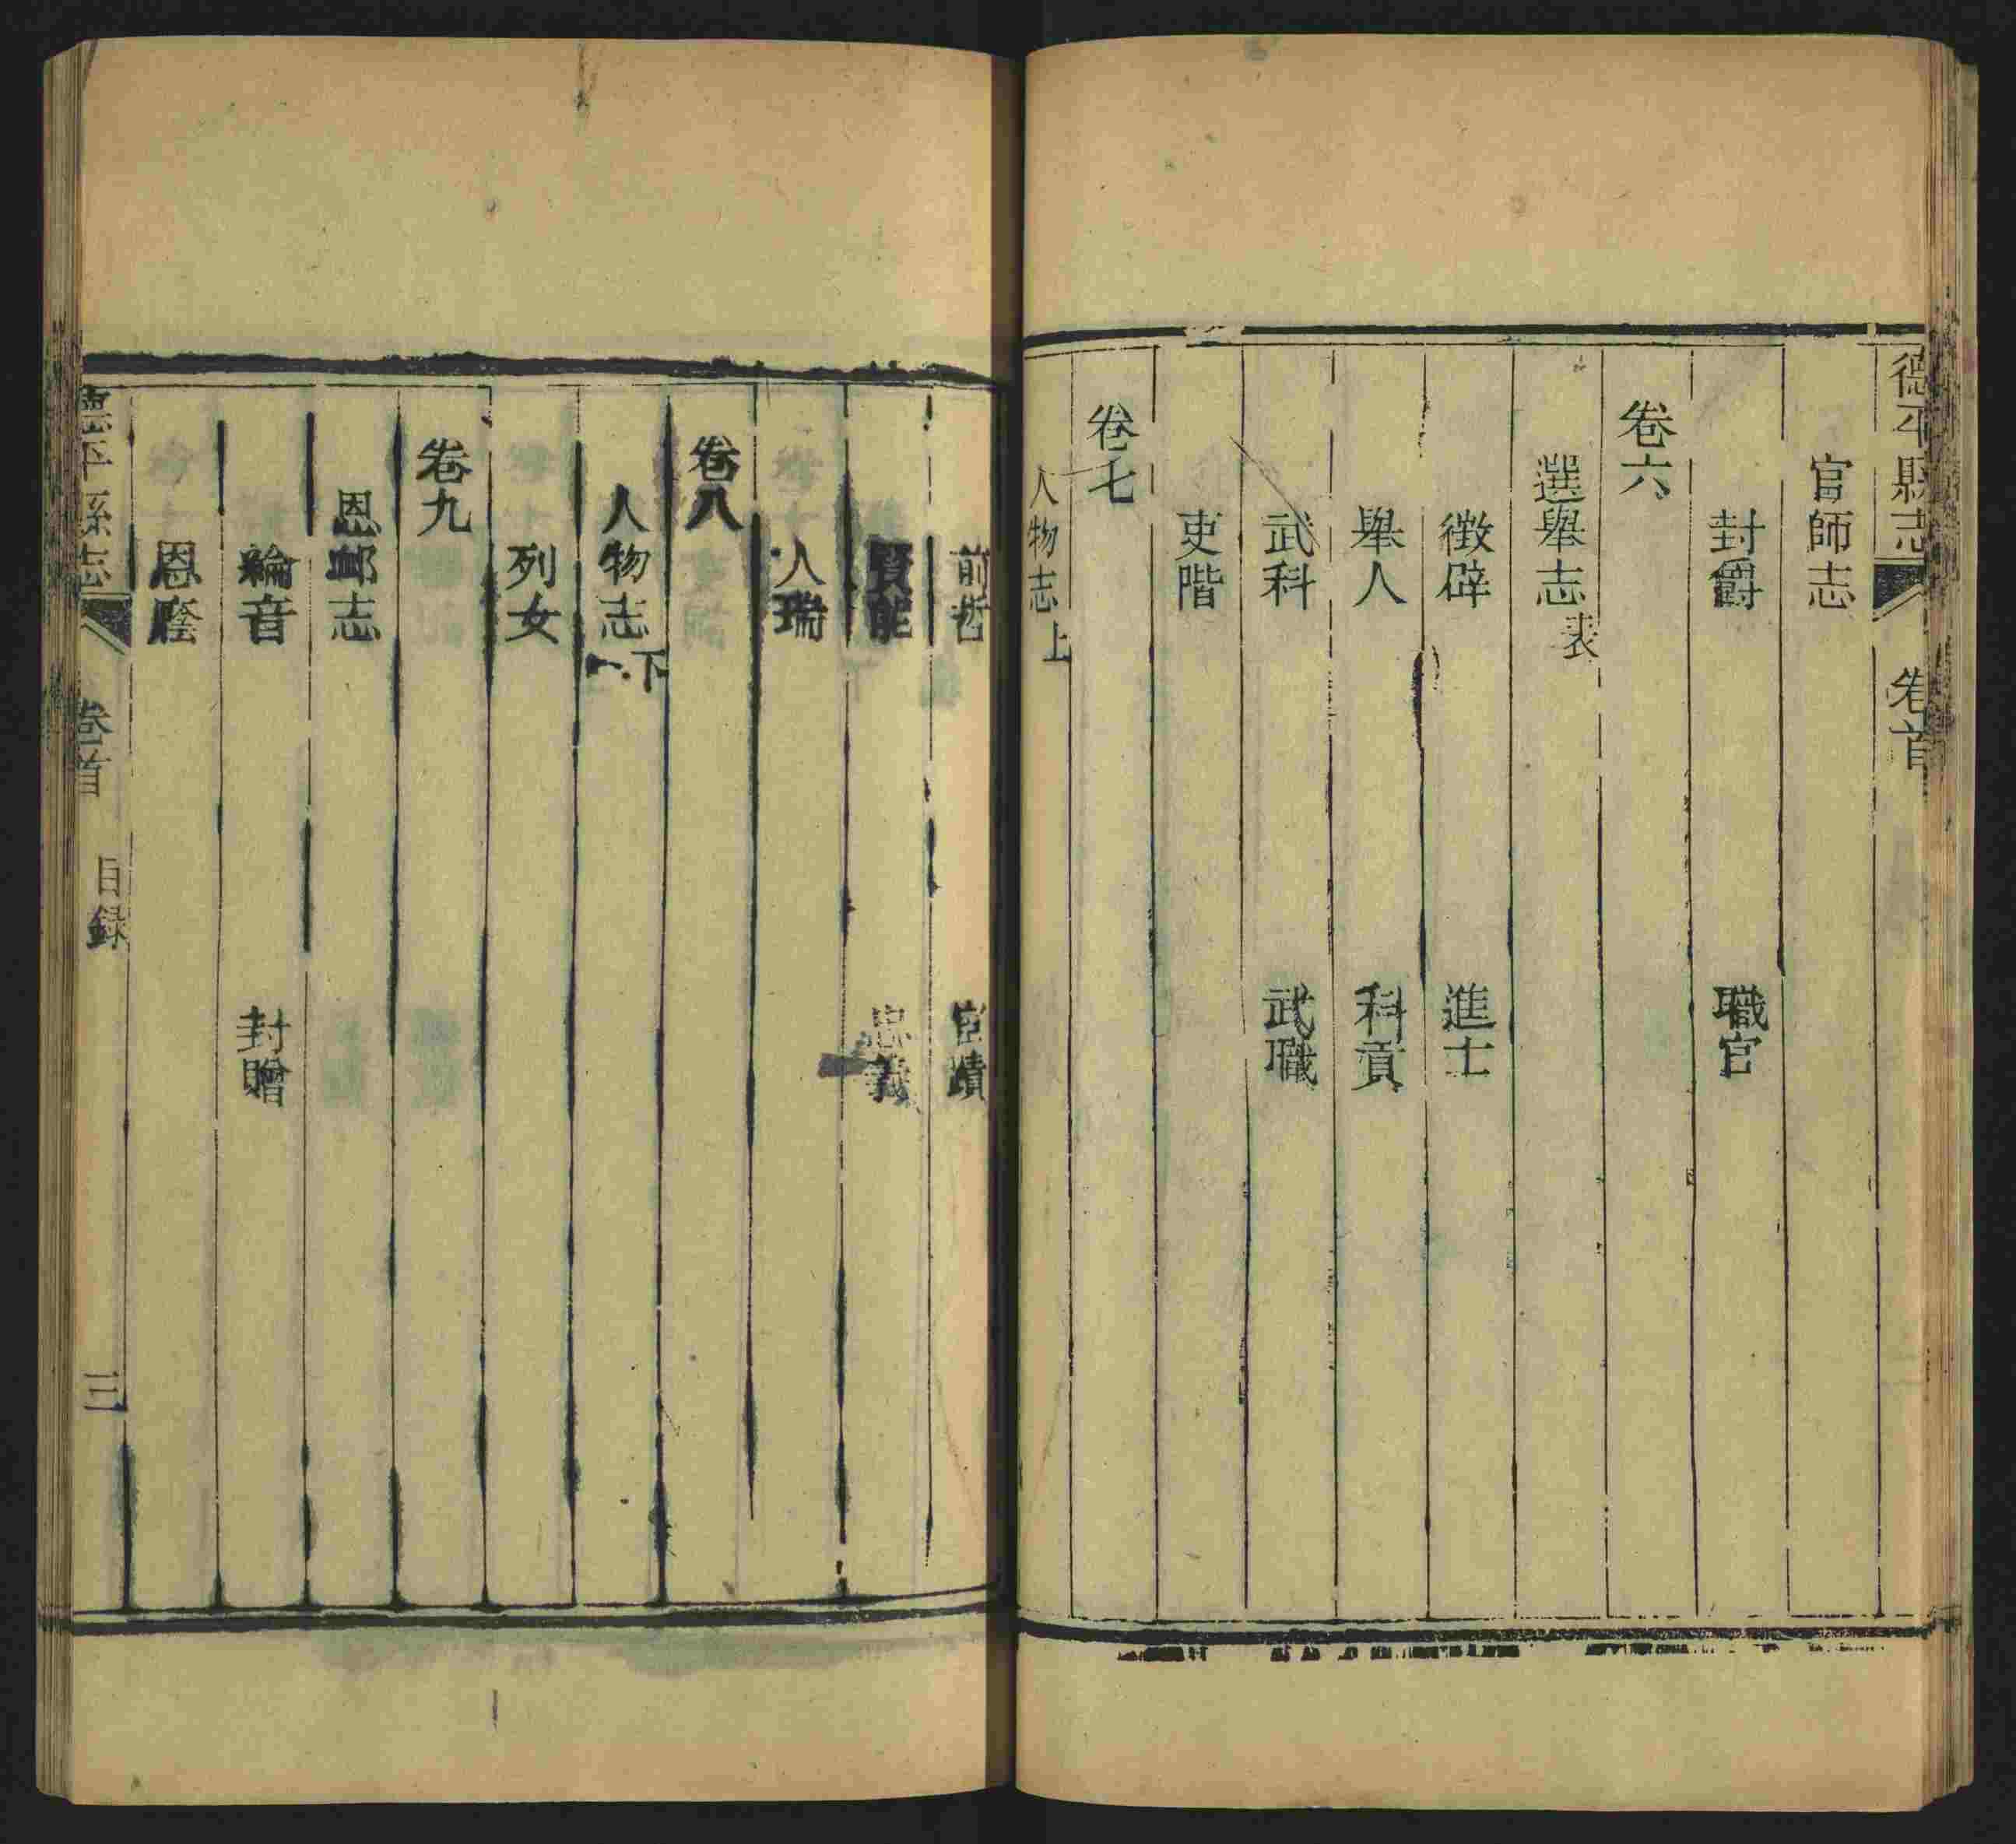 德平縣志 卷首
官師志
封爵 職官
卷六
選舉志表
徴辟 進士
舉人 科貢
武科 武職
吏階
卷七
人物志上
前哲 宦蹟
賢能 忠義
人瑞
卷八
人物志下
列女
卷九
恩邮志
綸音 封贈
恩廕
德平縣志 卷首 目録 三